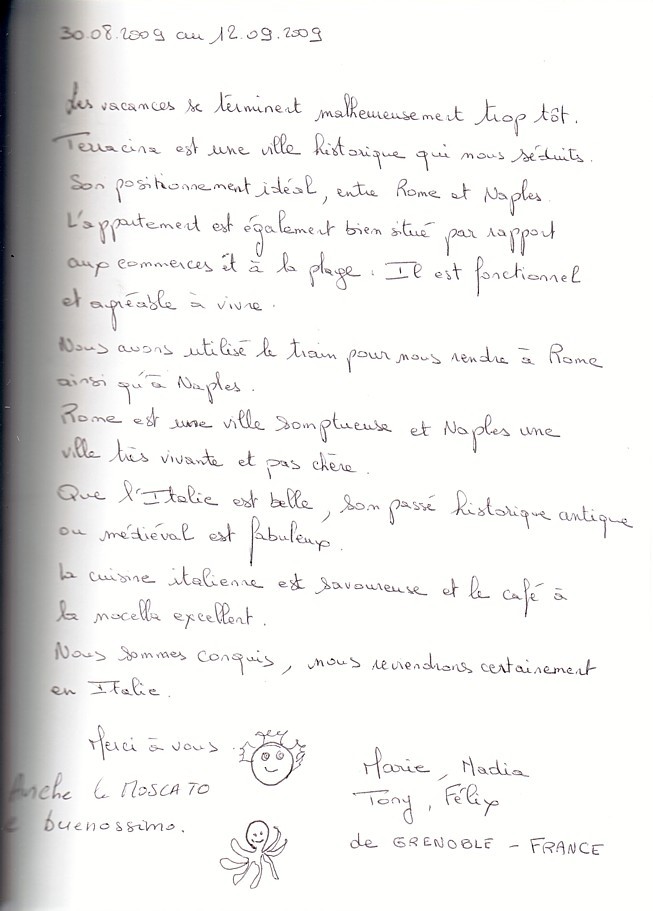 30.08.2009 au 12.09.2009
Les vacances se terminent malheureusement trop tôt.
Terracina est une ville historique qui nous séduits.
Son positionnement idéal, entre Rome et Naples.
L'appartement est également bien situé par rapport
aux commerces et à la plage. Il est fonctionnel
et agréable à vivre.
Nous avons utilisé le train pour nous rendre à Rome
ainsi qu'à Naples.
Rome est une ville somptueuse et Naples une
ville très vivante et pas chère.
Que l'Italie est belle, son passé historique antique
ou médiéval est fabuleux.
La cuisine italienne est savoureuse et le café à
la nocella excellent.
Nous sommes conquis, nous reviendrons certainement
en Italie.
Merci à vous
Anche le MOSCATO
e buenossimo.
Marie, Nadia
Tony, Félix
de GRENOBLE - FRANCE